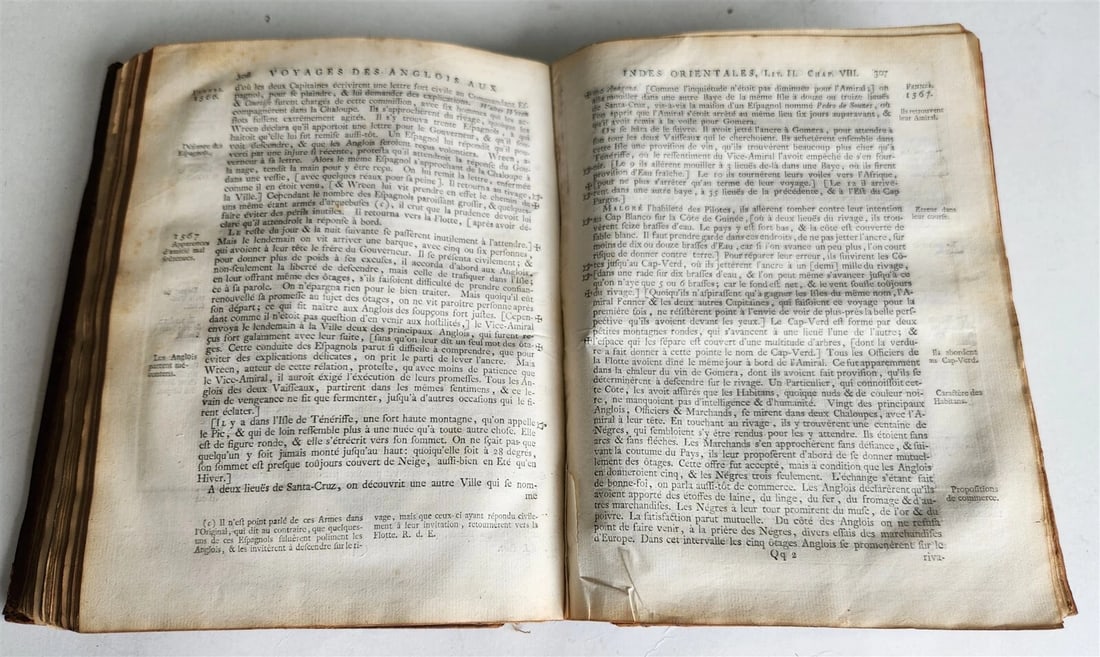 306 VOYAGES DES ANGLOIS AUX
FENNER.
1566.
d'où les deux Capitaines écrivirent une lettre fort civile au Commandant Es-
pagnol, pour se plaindre, & lui demander des explications. Wreen
& furent chargés de cette commission, avec six hommes qui les
compagnerent dans la Chaloupe. Ils s'approcherent du rivage,
fussent extrêmement agités. Il s'y trouva trente Espagnols,
Wreen déclara qu'il apportoit une lettre pour le Gouverneur, & qu'il sou-
haitoit qu'elle lui fut remise aussi-tôt. Un Espagnol lui répondit qu'il
voit défendre, & que les Anglois seroient reçus volontiers. Wreen,
verti par une injure si récente, protesta qu'il attendroit la réponse du Gou-
verneur à sa lettre. Alors le même Espagnol s'approcha de la Chaloupe à
la nage, tendit la main pour y être reçu. On lui remit la lettre, enfermée
dans une vessie, [avec quelques reaux pour sa peine]. Il retourna au rivage,
comme il en étoit venu, [& Wreen lui vit prendre en effet le chemin de
la Ville.] Cependant le nombre des Espagnols paroissant grossir, & quelques-
uns même étant armés d'arquebuses (c), il crut que la prudence devoit lui
faire éviter des périls inutiles. Il retourna vers la Flotte, [après avoir dé-
claré qu'il attendroit la réponse à bord.
Espagnol.
La reste du jour & la nuit suivante se passerent inutilement à l'attendre.]
1567
Apparences
d'amitié mal
soutenues.
Mais le lendemain on vit arriver une barque, avec cinq ou six personnes,
qui avoient à leur tête le frère du Gouverneur. Il se présenta civilement; &
pour donner plus de poids à ses excuses, il accorda d'abord aux Anglois,
non-seulement la liberté de descendre, mais celle de trafiquer dans l'Isle;
en leur offrant même des ôtages, s'ils faisoient difficulté de prendre confian-
ce à sa parole. On n'épargna rien pour le bien traiter. Mais quoiqu'il eût
renouvellé sa promesse au sujet des ôtages, on ne vit paroître personne après
son départ; ce qui fit naître aux Anglois des soupçons fort justes. [Cepen-
dant comme il n'étoit pas question d'en venir aux hostilités,] le Vice-Amiral
envoya le lendemain à la Ville deux des principaux Anglois, qui furent re-
çus fort galamment avec leur suite, [sans qu'on leur dît un seul mot des ôta-
ges. Cette conduite des Espagnols parut si difficile à comprendre, que pour
éviter des explications délicates, on prit le parti de lever l'ancre. Mais
Les Anglois
partent mé-
contens.
Wreen, auteur de cette relation, proteste, qu'avec moins de patience que
le Vice-Amiral, il auroit exigé l'exécution de leurs promesses. Tous les An-
glois des deux Vaisseaux, partirent dans les mêmes sentimens, & ce le-
vain de vengeance ne fit que fermenter, jusqu'à d'autres occasions qui le fi-
rent éclater.]
[IL y a dans l'Isle de Ténériffe, une fort haute montagne, qu'on appelle
le Pic, & qui de loin ressemble plus à une nuée qu'à toute autre chose. Elle
est de figure ronde, & elle s'étrécit vers son sommet. On ne sçait pas que
quelqu'un y soit jamais monté jusqu'au haut: quoiqu'elle soit à 28 degrés,
son sommet est presque toûjours couvert de Neige, aussi-bien en Eté qu'en
Hiver.]
A deux lieuës de Santa-Cruz, on découvrit une autre Ville qui se nom-
me
(c) Il n'est point parlé de ces Armes dans
l'Original, qui dit au contraire, que quelques-
uns de ces Espagnols saluèrent poliment les
Anglois, & les invitèrent à descendre sur le ri-
vage, mais que ceux-ci ayant répondu civile-
ment à leur invitation, retournèrent vers la
Flotte. R. d. E.
INDES ORIENTALES, LIV. II. CHAP. VIII. 307
FENNER.
1567.
[Comme l'inquiétude n'étoit pas diminuée pour l'Amiral;] on
alla mouiller dans une autre Baye de la même Isle à douze ou treize lieuës
de Santa-Cruz, vis-à-vis la maison d'un Espagnol nommé Pedro de Souner, où
l'on apprit que l'Amiral s'étoit arrêté au même lieu six jours auparavant, &
qu'il avoit remis à la voile pour Gomera.
Ils retrouvent
leur Amiral.
On se hâta de le suivre. Il avoit jetté l'ancre à Gomera, pour attendre à
son tour les deux Vaisseaux qui le cherchoient. Ils achetèrent ensemble dans
cette Isle une provision de vin, qu'ils trouvèrent beaucoup plus cher qu'à
Ténériffe, où le ressentiment du Vice-Amiral l'avoit empêché de s'en four-
nir. [Le 9 ils allèrent mouiller à 5 lieuës de-là dans une Baye, où ils firent
provision d'Eau fraîche.] Le 10 ils tournèrent leurs voiles vers l'Afrique,
[pour ne plus s'arrêter qu'au terme de leur voyage.] [Le 12 il arrivè-
rent dans une autre baye, à 35 lieuës de la précédente, & à l'Est du Cap
Pargos.]
Erreur dans
leur course.
MALGRÉ l'habileté des Pilotes, ils allèrent tomber contre leur intention
au Cap Blanco sur la Côte de Guinée, [où à deux lieuës du rivage, ils trou-
vèrent seize brasses d'eau. Le pays y est fort bas, & la côte est couverte de
sable blanc. Il faut prendre garde dans ces endroits, de ne pas jetter l'ancre, sur
moins de dix ou douze brasses d'Eau, car si l'on avance un peu plus, l'on court
risque de donner contre terre.] Pour réparer leur erreur, ils suivirent les Cô-
res jusqu'au Cap-Verd, où ils jettèrent l'ancre à un [demi] mille du rivage,
[dans une rade sur dix brasses d'eau, & l'on peut même s'avancer jusqu'à ce
qu'on n'aye que 5 ou 6 brasses; car le fond est net, & le vent souffle toûjours
du rivage.] [Quoiqu'ils n'aspirassent qu'à gagner les Isles du même nom, l'A-
miral Fenner & les deux autres Capitaines, qui faisoient ce voyage pour la
première fois, ne résistèrent point à l'envie de voir de plus-près la belle pers-
pective qu'ils avoient devant les yeux.] Le Cap-Verd est formé par deux
petites montagnes rondes, qui s'avancent à une lieuë l'une de l'autre; &
l'espace qui les sépare est couvert d'une multitude d'arbres, [dont la verdu-
re a fait donner à cette pointe le nom de Cap-Verd.] Tous les Officiers de
la Flotte avoient dîné le même jour à bord de l'Amiral. Ce fut apparemment
dans la chaleur du vin de Gomera, dont ils avoient fait provision, qu'ils se
déterminèrent à descendre sur le rivage. Un Particulier, qui connoissoit cet-
te Côte, les avoit assurés que les Habitans, quoique nuds & de couleur noi-
re, ne manquoient pas d'intelligence & d'humanité. Vingt des principaux
Ils abordent
au Cap-Verd.
Caractère des
Habitans.
Anglois, Officiers & Marchands, se mirent dans deux Chaloupes, avec l'A-
miral à leur tête. En touchant au rivage, ils y trouvèrent une centaine de
Négres, qui sembloient s'y être rendus pour les y attendre. Ils étoient sans
arcs & sans fléches. Les Marchands s'en approchèrent sans défiance, & sui-
vant la coutume du Pays, ils leur proposèrent d'abord de se donner mutuel-
lement des ôtages. Cette offre fut acceptée, mais à condition que les Anglois
en donneroient cinq, & les Négres trois seulement. L'échange s'étant fait
de bonne-foi, on parla aussi-tôt de commerce. Les Anglois déclarèrent qu'ils
avoient apporté des étoffes de laine, du linge, du fer, du fromage & d'au-
tres marchandises. Les Négres à leur tour promirent du musc, de l'or & du
poivre. La satisfaction parut mutuelle. Du côté des Anglois on ne refusa
point de faire venir, à la prière des Négres, divers essais des marchandises
d'Europe. Dans cet intervalle les cinq ôtages Anglois se promenèrent sur le
Propositions
de commerce.
Qq 2
riva-